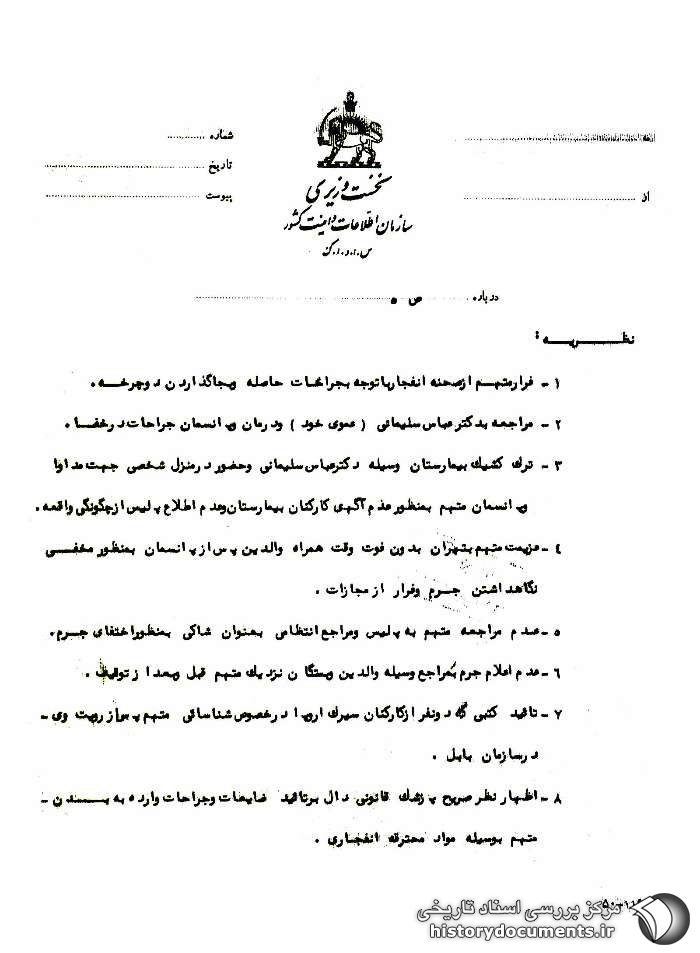 شماره
تاریخ
پیوست
از
نخست وزیری
سازمان اطلاعات و امنیت کشور
س.ا.و.ا.ک
درباره ص ۵
نظریه :
۱ - فرار متهم از صحنه انفجار با توجه بجراحات حاصله و بجا گذاردن دوچرخه .
۲ - مراجعه بدکتر عباس سلیمانی ( عموی خود ) و درمان و پانسمان جراحات در خفا .
۳ - ترک کشیک بیمارستان وسیله دکتر عباس سلیمانی و حضور در منزل شخصی جهت مداوا
و پانسمان متهم بمنظور عدم آگهی کارکنان بیمارستان و عدم اطلاع پلیس از چگونگی واقعه .
۴ - عزیمت متهم بتهران بدون فوت وقت همراه والدین پس از پانسمان بمنظور مخفی
نگاهداشتن جرم و فرار از مجازات .
۵ - عدم مراجعه متهم به پلیس و مراجع انتظامی بعنوان شاکی بمنظور اختفای جرم .
۶ - عدم اعلام جرم بمراجع وسیله والدین و بستگان نزدیک متهم قبل و بعد از توقیف .
۷ - تائید کتبی دو نفر از کارکنان سیرک اروپا در خصوص شناسائی متهم پس از رویت وی -
در سازمان بابل .
۸ - اظهار نظر صریح پزشک قانونی دال بر تائید ضایعات و جراحات وارده به بدن -
متهم بوسیله مواد محترقه انفجاری .
مرکز بررسی اسناد تاریخی
historydocuments.ir